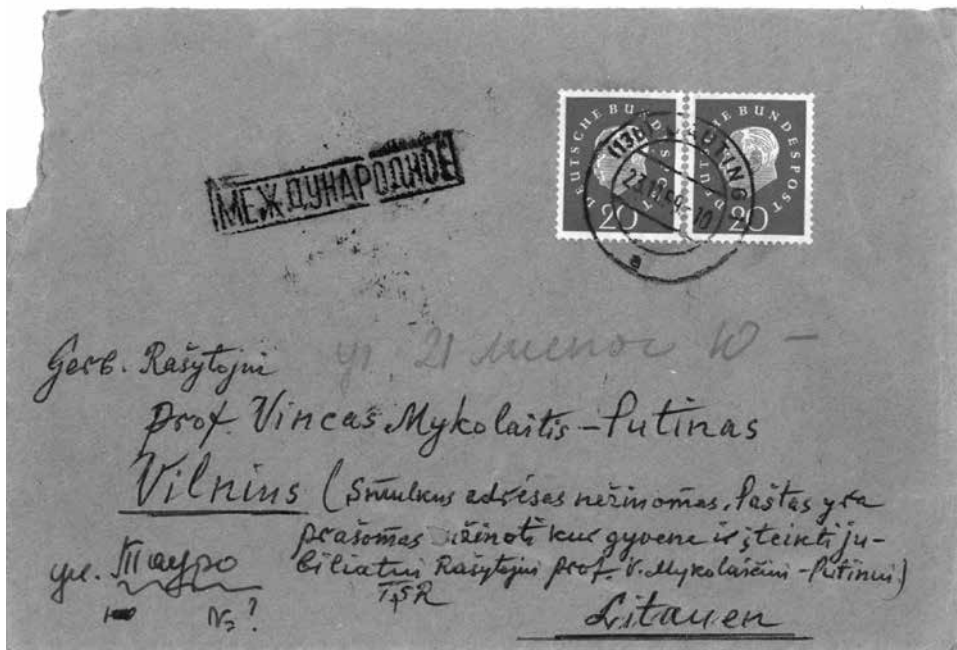 МЕЖДУНАРОДНОЕ
DEUTSCHE BUNDESPOST DEUTSCHE BUNDESPOST
20 20
Gerb. Rašytojui
ул. 21
10 –
prof. Vincas Mykolaitis-Putinas
Vilnius (Smulkus adresas nežinomas. Paštas yra
prašomas sužinoti kur gyvena ir įteikti ju-
biliatui Rašytojui prof. V. Mykolaičiui-Putinui)
ул. Тауро
№?
Litauen